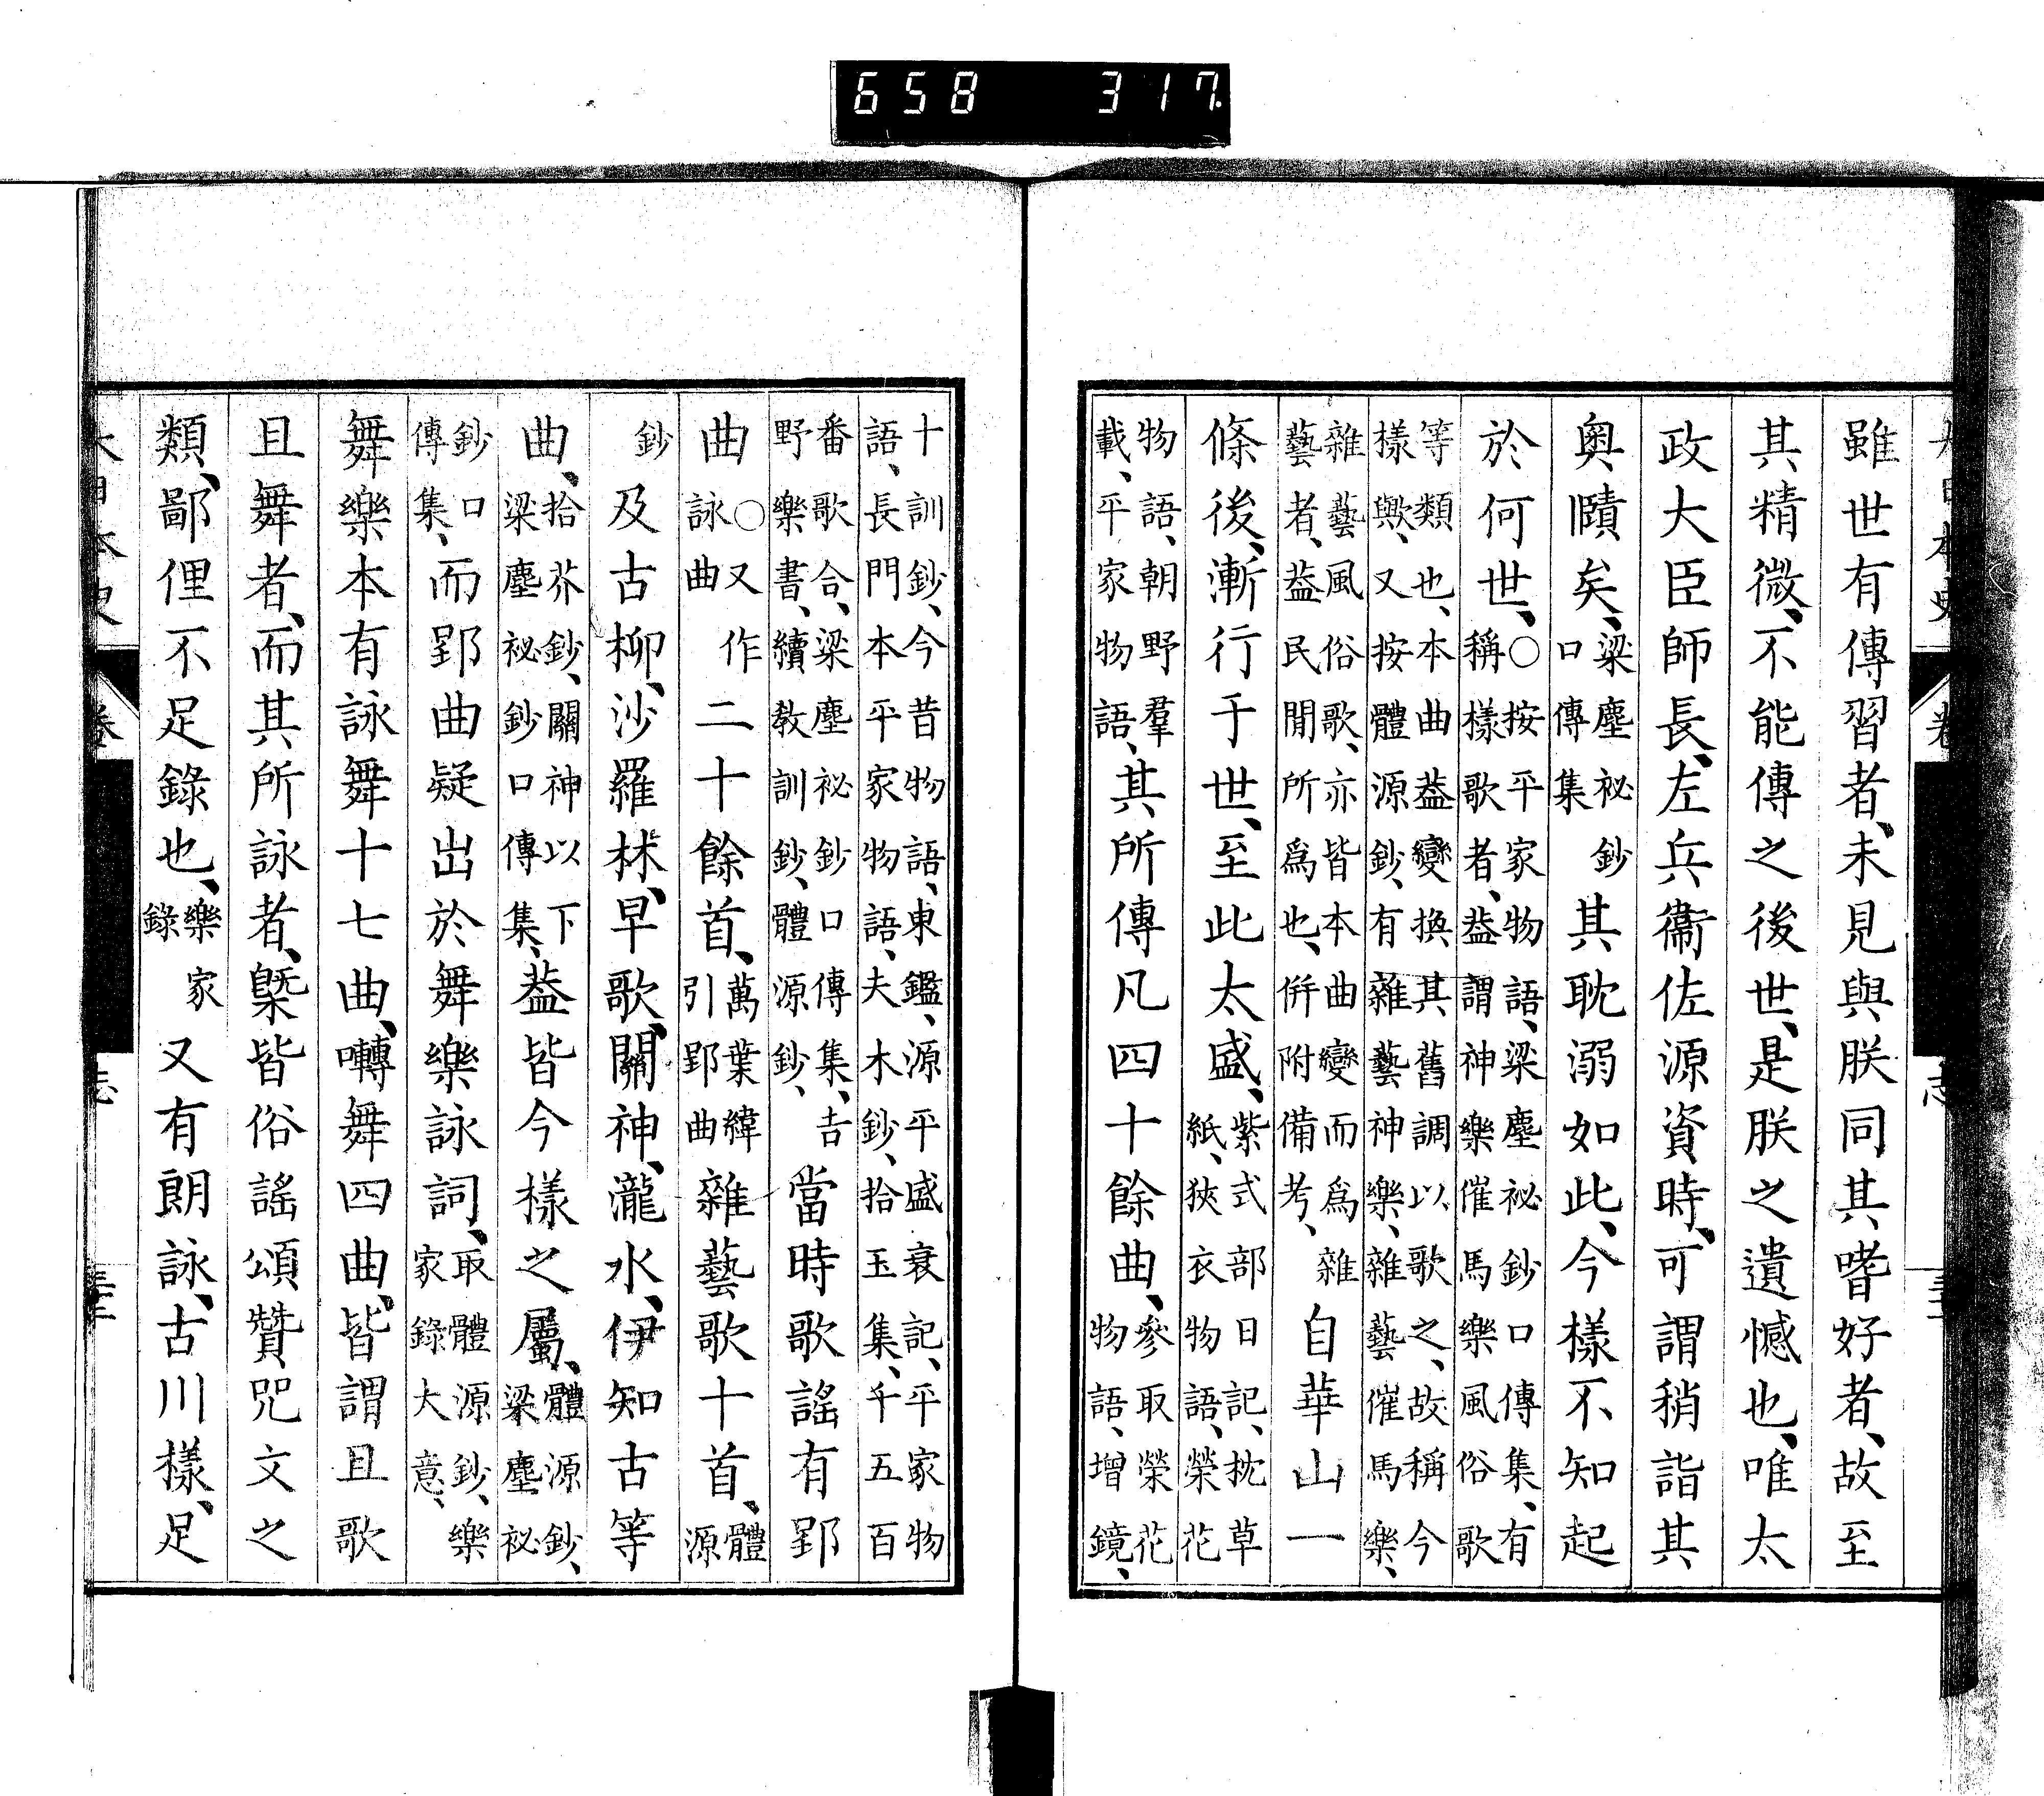 大日本史 卷 志
雖世有傳習者、未見與朕同其嗜好者、故至
其精微、不能傳之後世、是朕之遺憾也、唯太
政大臣師長、左兵衞佐源資時、可謂稍詣其
奧賾矣、梁塵祕鈔口傳集其耽溺如此、今樣不知起
於何世、○按平家物語、梁塵祕鈔口傳集、有
稱樣歌者、蓋謂神樂催馬樂風俗歌
等類也、本曲蓋變換其舊調以歌之、故稱今
樣歟、又按體源鈔、有雜藝神樂、雜藝催馬樂、
雜藝風俗歌、亦皆本曲變而爲雜
藝者、蓋民間所爲也、倂附備考、自華山一
條後、漸行于世、至此太盛、紫式部日記、枕草
紙、狹衣物語、榮花
物語、朝野羣
載、平家物語、其所傳凡四十餘曲、參取榮花
物語、增鏡、
十訓鈔、今昔物語、東鑑、源平盛衰記、平家物
語、長門本平家物語、夫木鈔、拾玉集、千五百
番歌合、梁塵祕鈔口傳集、吉
野樂書、續敎訓鈔、體源鈔、當時歌謠有郢
曲○又作詠曲二十餘首、萬葉緯引郢曲雜藝歌十首、體源
鈔及古柳、沙羅林、早歌、關神、瀧水、伊知古等
曲、拾芥鈔、關神以下梁塵祕鈔口傳集、蓋皆今樣之屬、體源鈔、梁塵祕
鈔口傳集、而郢曲疑出於舞樂詠詞、取體源鈔、樂家錄大意、
舞樂本有詠舞十七曲、囀舞四曲、皆謂且歌
且舞者、而其所詠者、槩皆俗謠頌贊咒文之
類、鄙俚不足錄也、樂家錄又有朗詠、古川樣、足
大日本史 卷 志